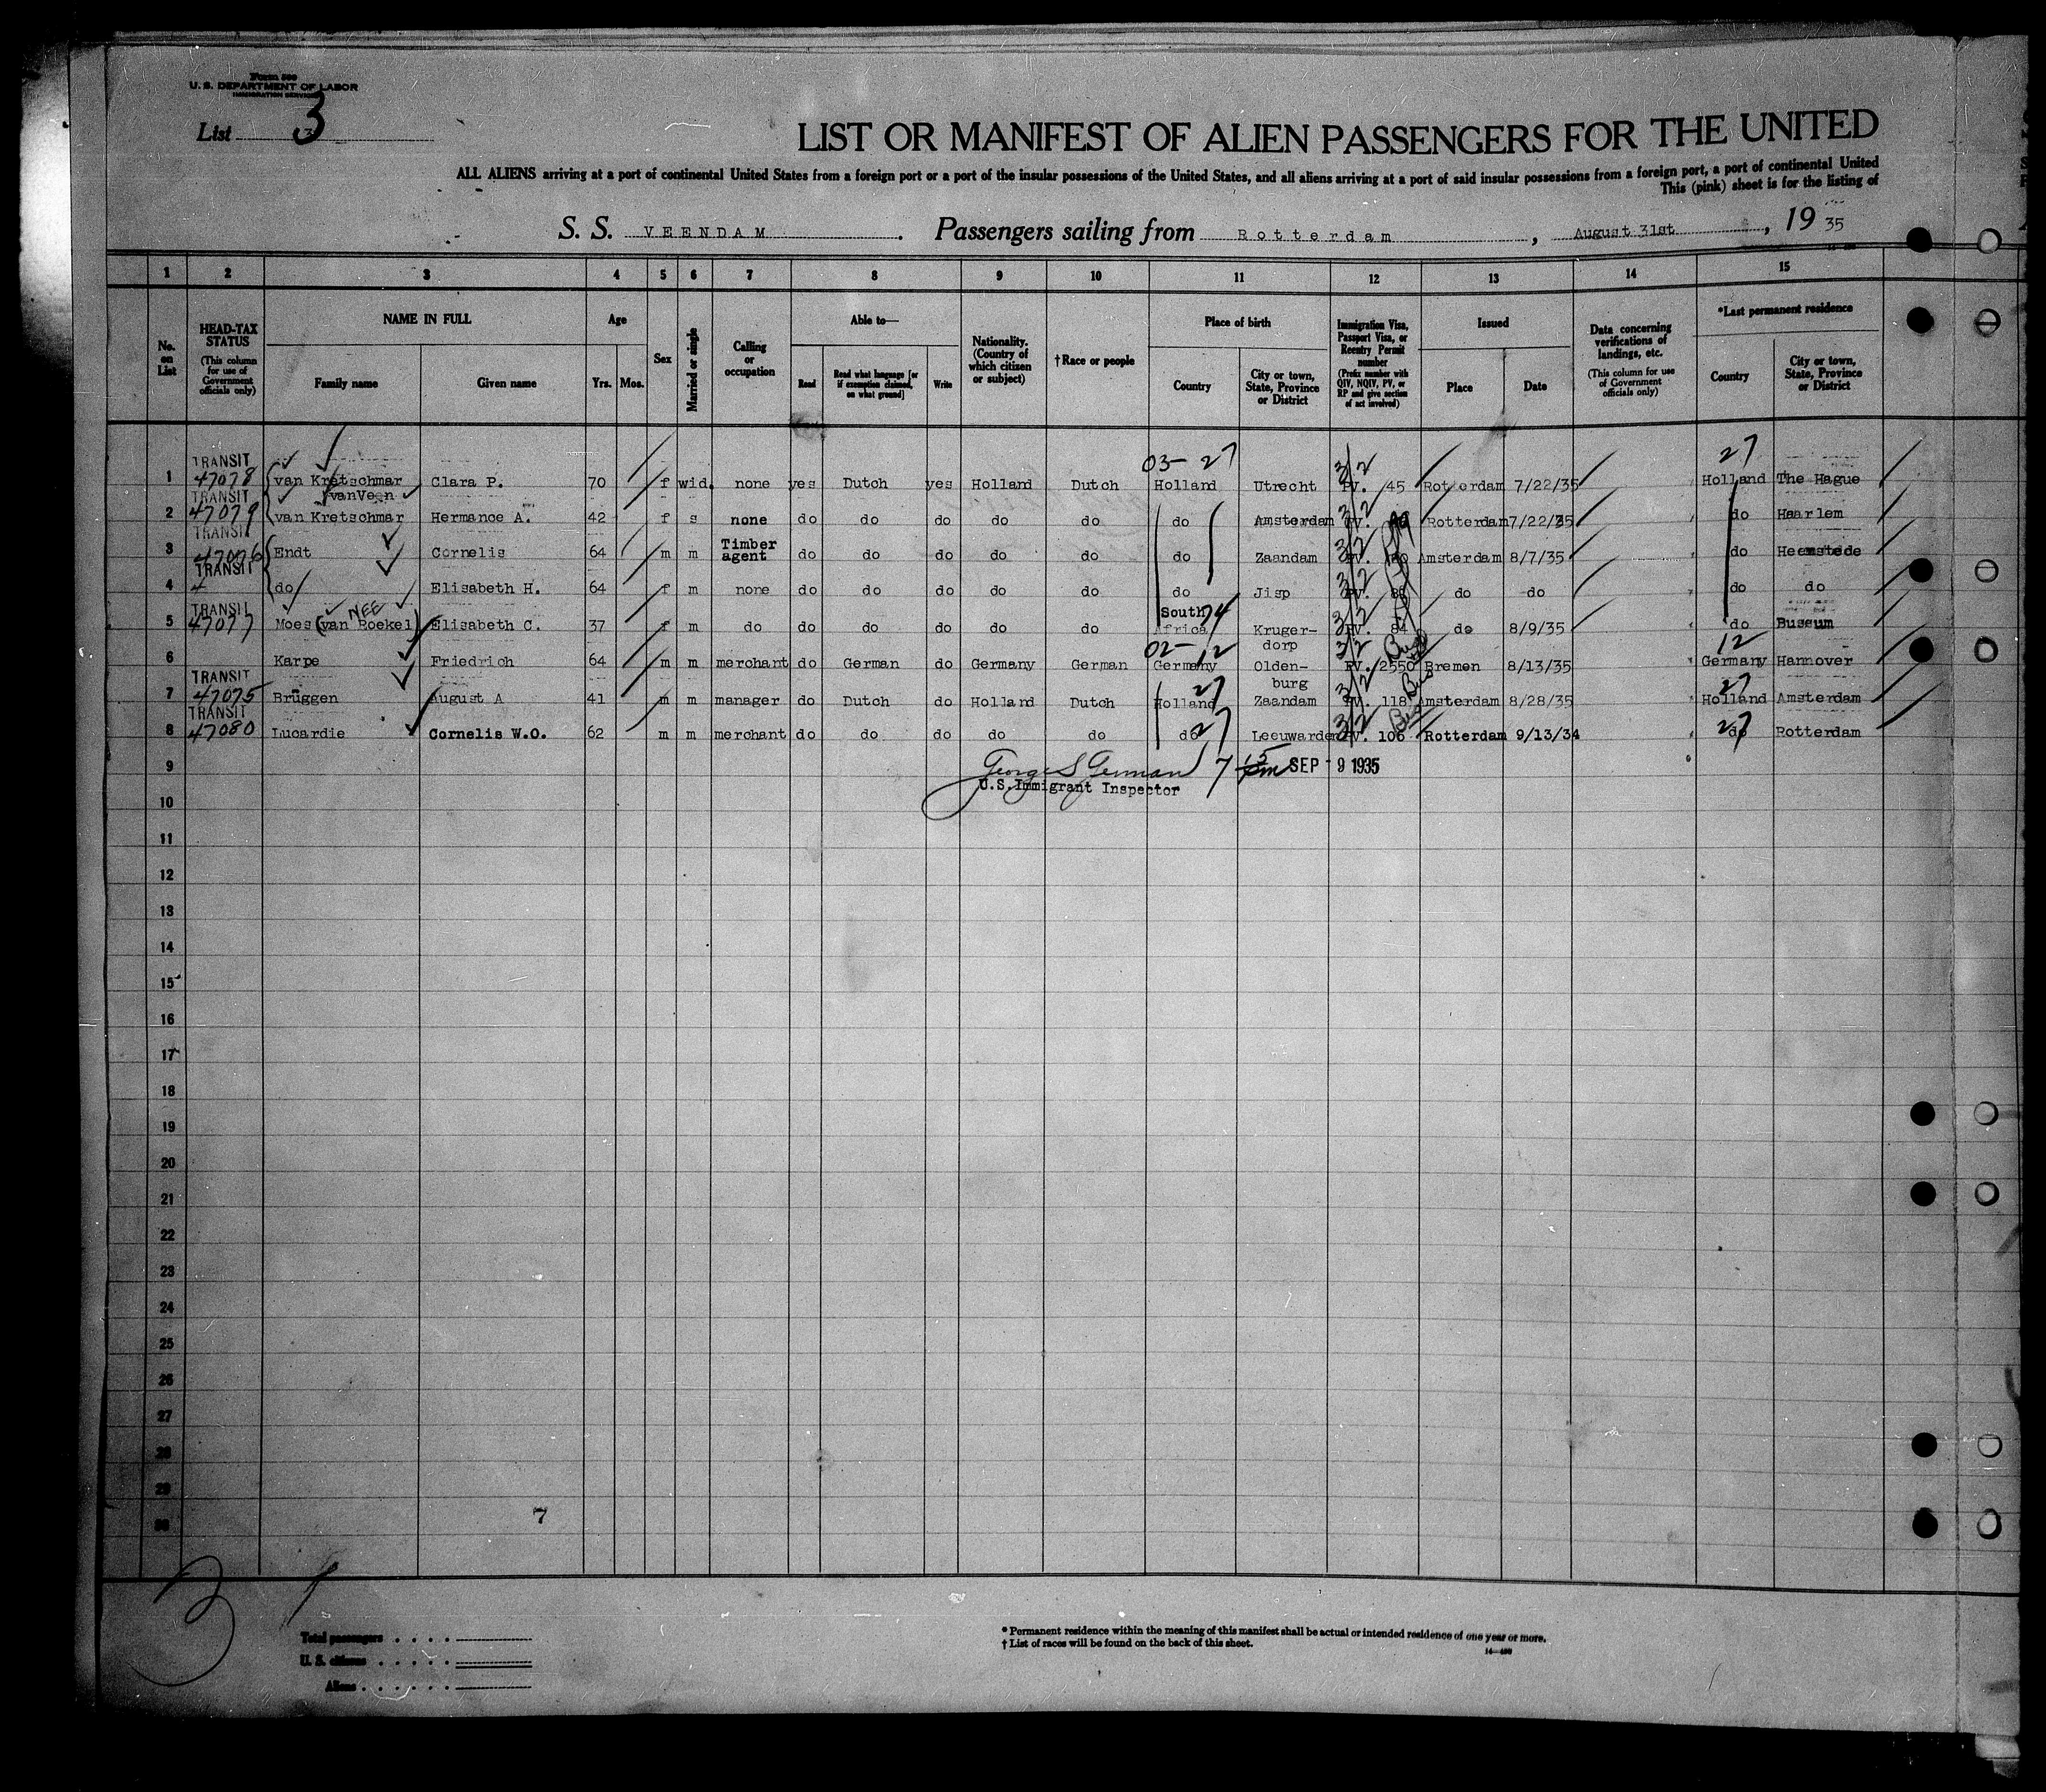 Form 500
U. S. DEPARTMENT OF LABOR
IMMIGRATION SERVICE
List 3
LIST OR MANIFEST OF ALIEN PASSENGERS FOR THE UNITED
ALL ALIENS arriving at a port of continental United States from a foreign port or a port of the insular possessions of the United States, and all aliens arriving at a port of said insular possessions from a foreign port, a port of continental United
This (pink) sheet is for the listing of
S. S. VEENDAM . Passengers sailing from Rotterdam , August 31st , 19 35
1 2 3 4 5 6 7 8 9 10 11 12 13 14 15
No. on List
HEAD-TAX STATUS (This column for use of Government officials only)
NAME IN FULL Family name Given name
Age Yrs. Mos.
Sex
Married or single
Calling or occupation
Able to— Read Read what language [or if exemption claimed, on what ground] Write
Nationality. (Country of which citizen or subject)
†Race or people
Place of birth Country City or town, State, Province or District
Immigration Visa, Passport Visa, or Reentry Permit number (Prefix number with QIV, NQIV, PV, or RP and give section of act involved)
Issued Place Date
Data concerning verifications of landings, etc. (This column for use of Government officials only)
*Last permanent residence Country City or town, State, Province or District
TRANSIT 03- 27 3/2 27
1 47078 van Kretschmar Clara P. 70 f wid. none yes Dutch yes Holland Dutch Holland Utrecht PV. 45 Rotterdam 7/22/35 Holland The Hague
TRANSIT vanVeen 3/2
2 47079 van Kretschmar Hermance A. 42 f s none do do do do do do Amsterdam PV. Rotterdam 7/22/35 do Haarlem
TRANSIT Timber 3/2
3 47076 Endt Cornelis 64 m m agent do do do do do do Zaandam PV. Amsterdam 8/7/35 do Heemstede
TRANSIT 3/2
4 do Elisabeth H. 64 f m none do do do do do do Jisp PV. do do do do
TRANSIT NEE South 74 3/2
5 47077 Moes (van Roekel) Elisabeth C. 37 f m do do do do do do Africa Kruger- PV. 84 do 8/9/35 do Bussum
02- 12 dorp 3/2 12
6 Karpe Friedrich 64 m m merchant do German do Germany German Germany Olden- PV. 2550 Bremen 8/13/35 Germany Hannover
TRANSIT 27 burg 3/2 27
7 47075 Brüggen August A 41 m m manager do Dutch do Holland Dutch Holland Zaandam PV. 118 Amsterdam 8/28/35 Holland Amsterdam
TRANSIT 27 3/2 27
8 47080 Lucardie Cornelis W.O. 62 m m merchant do do do do do do Leeuwarden PV. 106 Rotterdam 9/13/34 do Rotterdam
9 George S German SEP - 9 1935
U.S.Immigrant Inspector
10
11
12
13
14
15
16
17
18
19
20
21
22
23
24
25
26
27
28
29
7
30
3 1
Total passengers
U. S. citizens
Aliens
* Permanent residence within the meaning of this manifest shall be actual or intended residence of one year or more.
† List of races will be found on the back of this sheet.